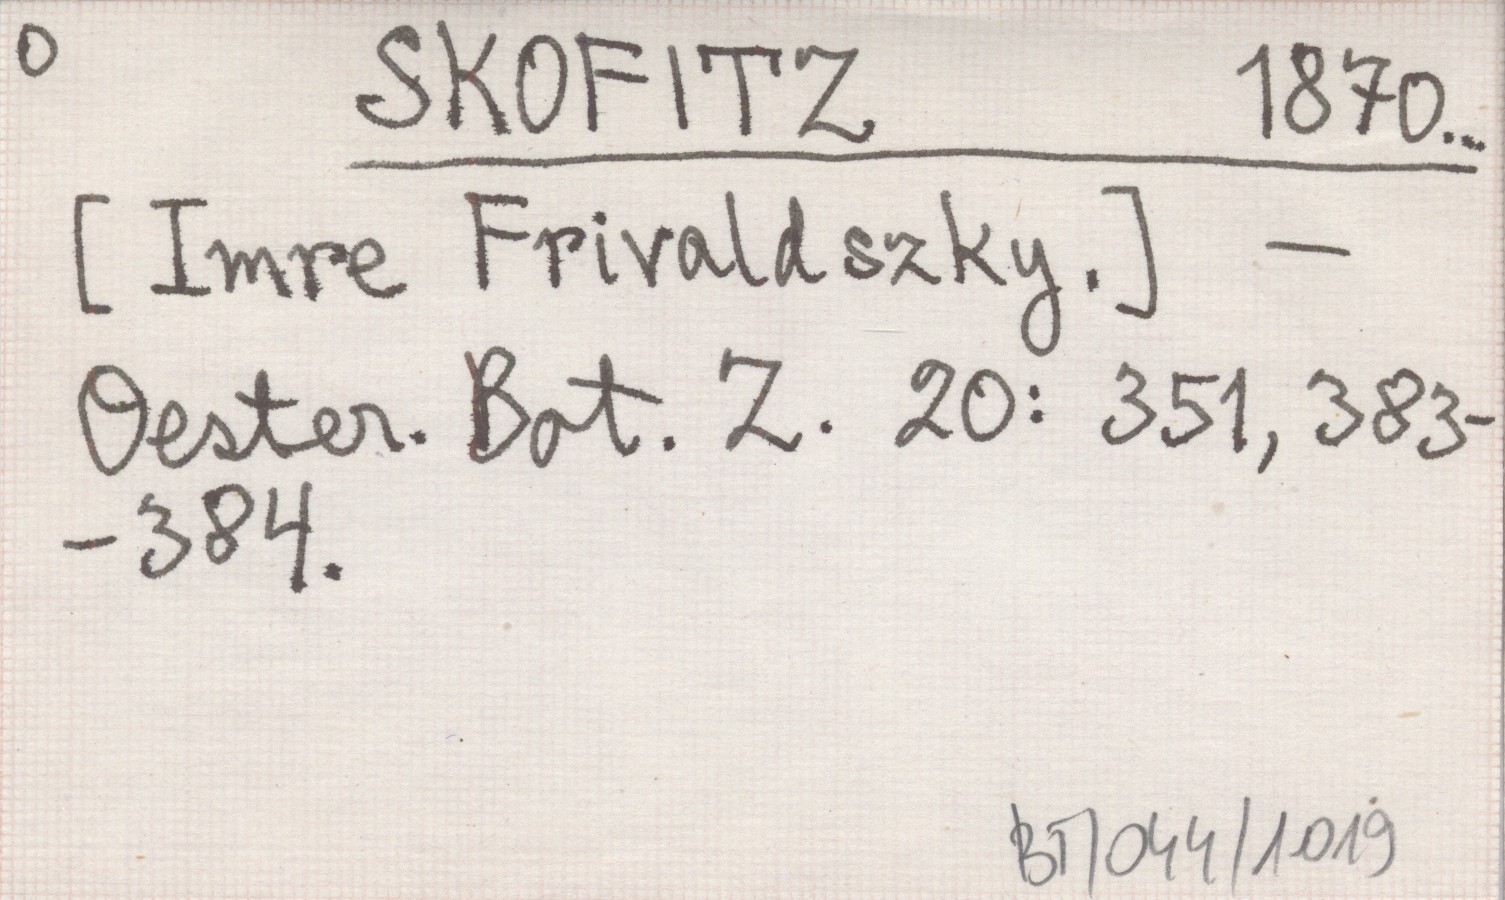 O SKOFITZ 1870...
[Imre Frivaldszky.] —
Oester. Bot. Z. 20: 351, 383-
-384.
BT/044/1019